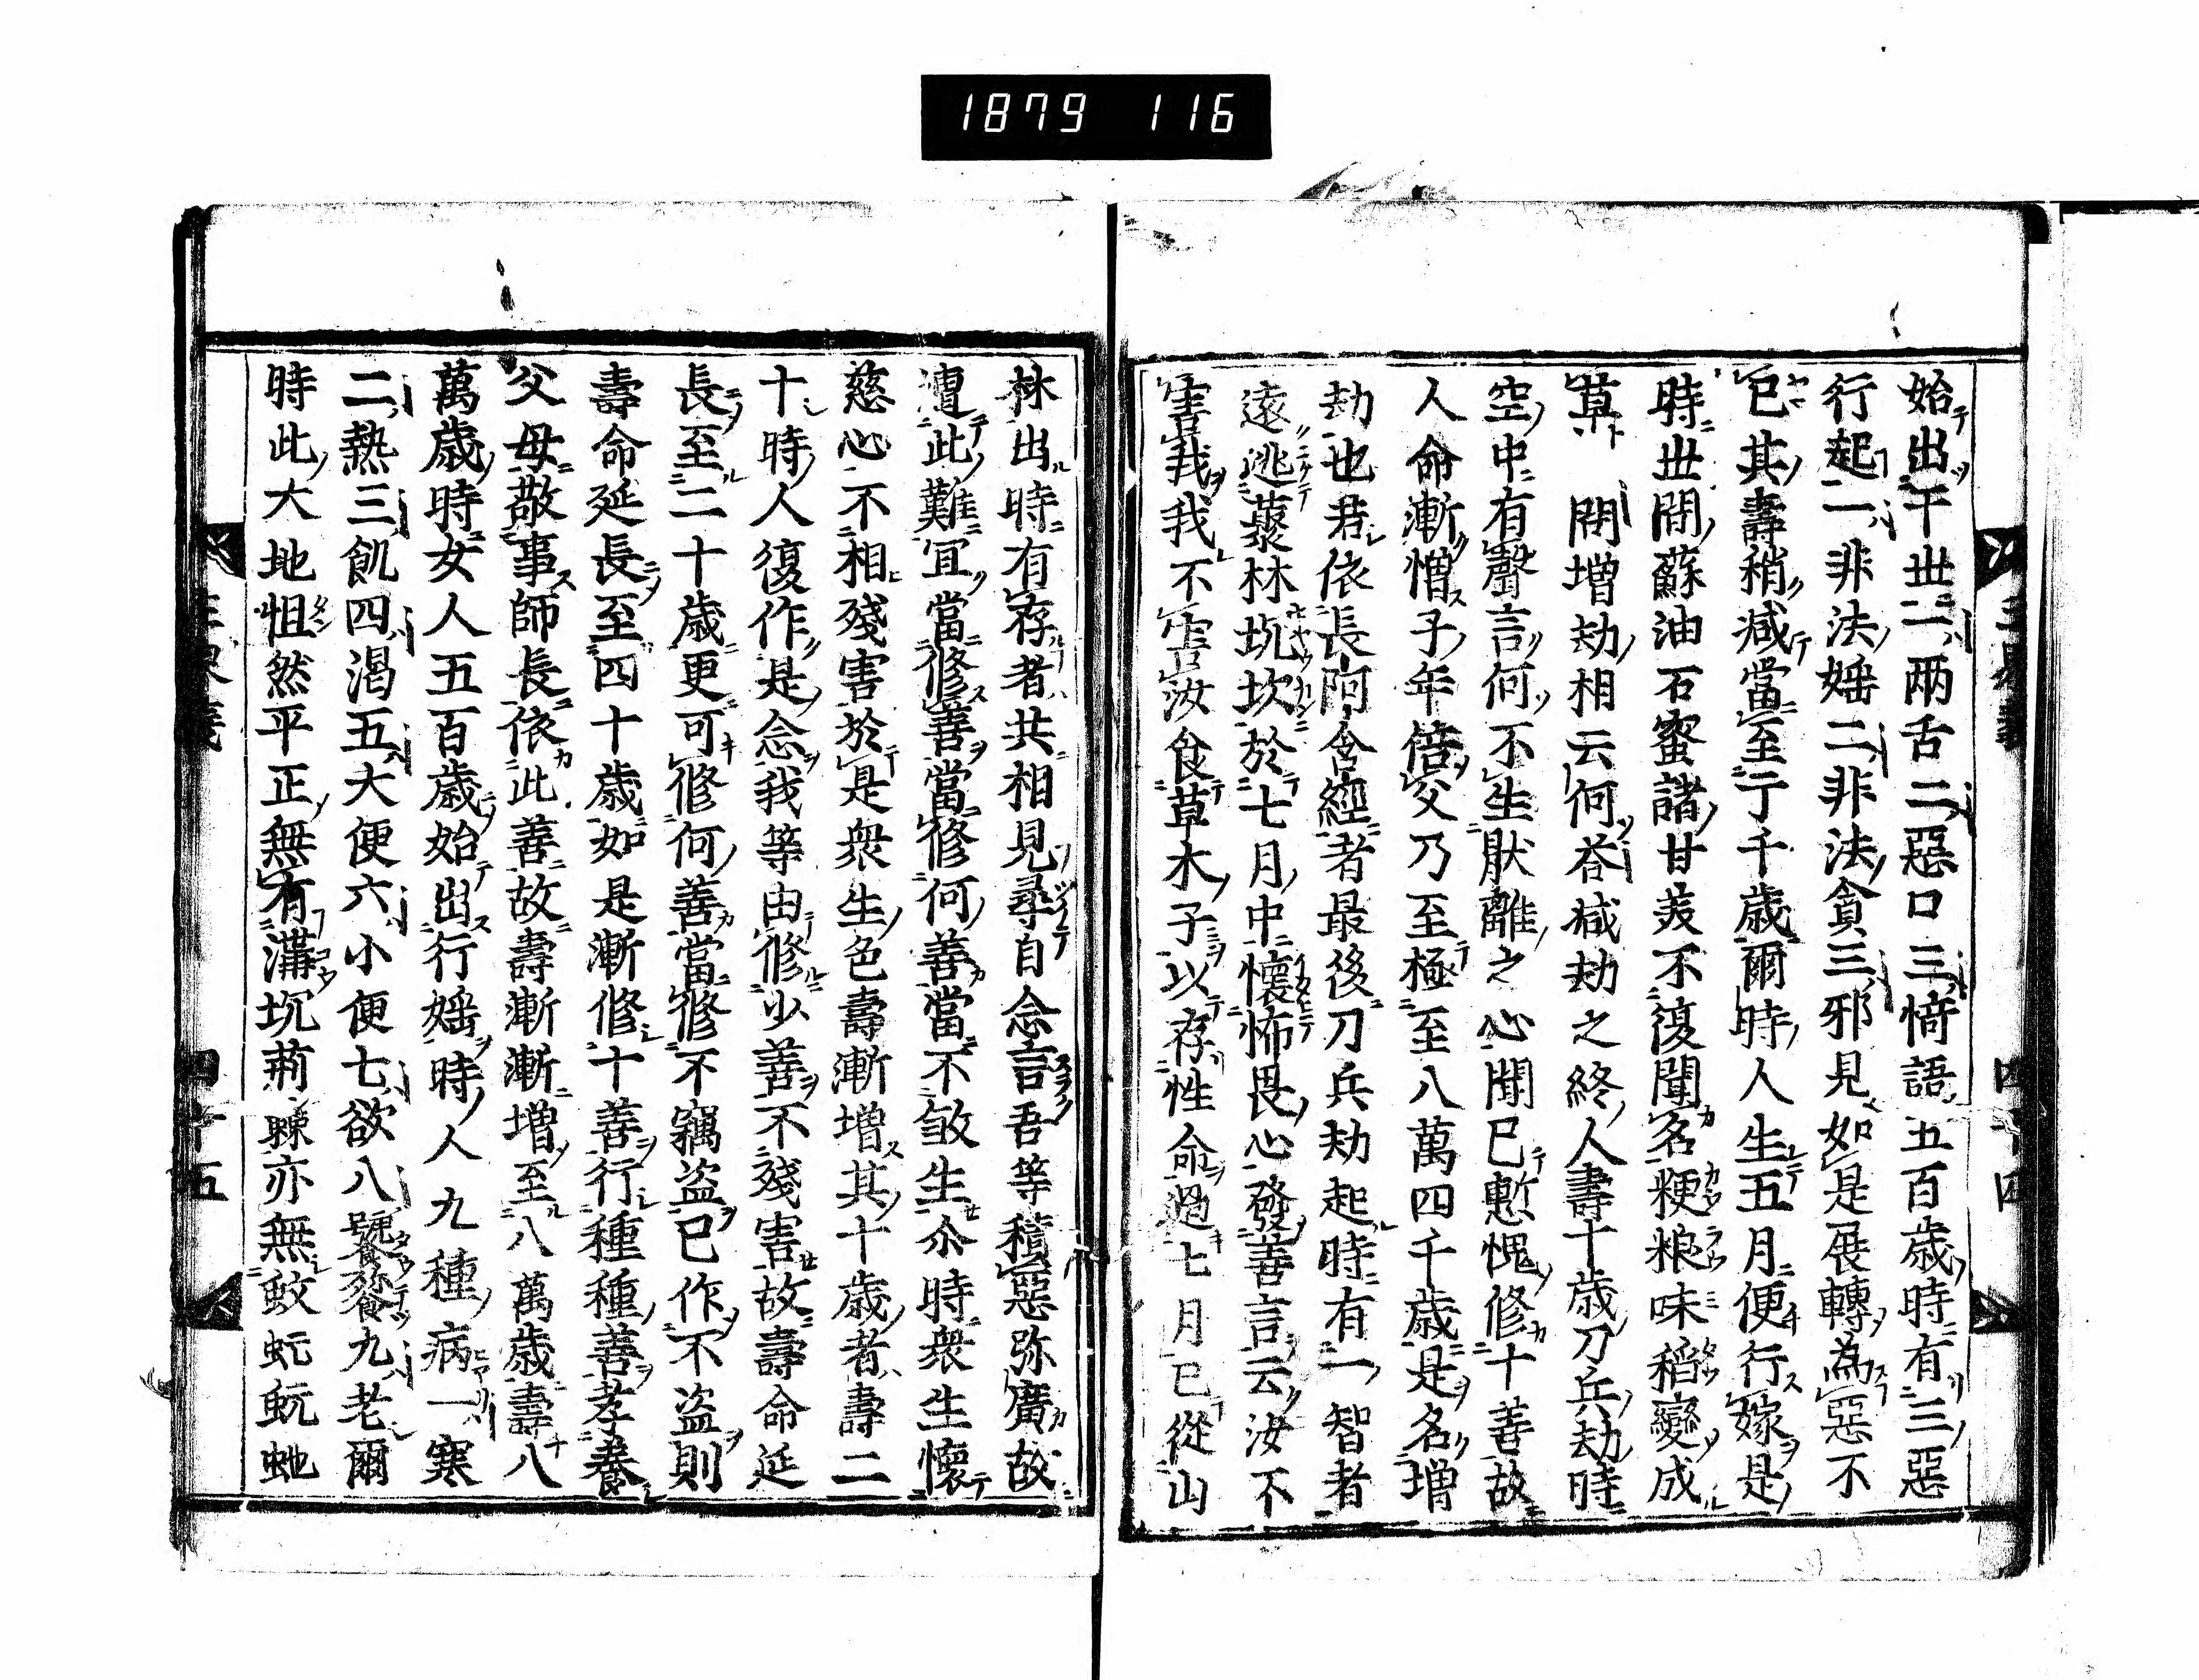 1879 116
始出于世二兩舌二惡口三愭語五百歳時有三惡
行起一非法婬二非法貪三邪見如是展轉為惡不
已其壽稍减當至于千歳爾時人生五月便行嫁是
時世間蘇油石蜜諸甘美不復聞名粳粮味稻變成
草 問増劫相云何荅减劫之終人壽十歳刀兵劫時
空中有聲言何不生猒離之心聞已慙愧修十善故
人命漸増子年倍父乃至極至八萬四千歳是名増
劫也若依長阿含經者最後刀兵劫起時有一智者
遠逃藂林坑坎於七月中懷怖畏心發善言云汝不
害我我不害汝食草木子以存性命過七月已從山
林出時有存者共相見尋自念言吾等積惡弥廣故
遭此難宜當修善當修何善當不敏生尒時衆生懷
慈心不相殘害於是衆生色壽漸増其十歳者壽二
十時人復作是念我等由修少善不殘害故壽命延
長至二十歳更可修何善當修不竊盜已作不盜則
壽命延長至四十歳如是漸修十善行種種善孝養
父母敬事師長依此善故壽漸漸増至八萬歳壽八
萬歳時女人五百歳始出行婬時人九種病一寒
二熱三飢四渴五大便六小便七欲八饕餮九老爾
時此大地怛然平正無有溝坑荊棘亦無蚊蚖蚖虵
四十五